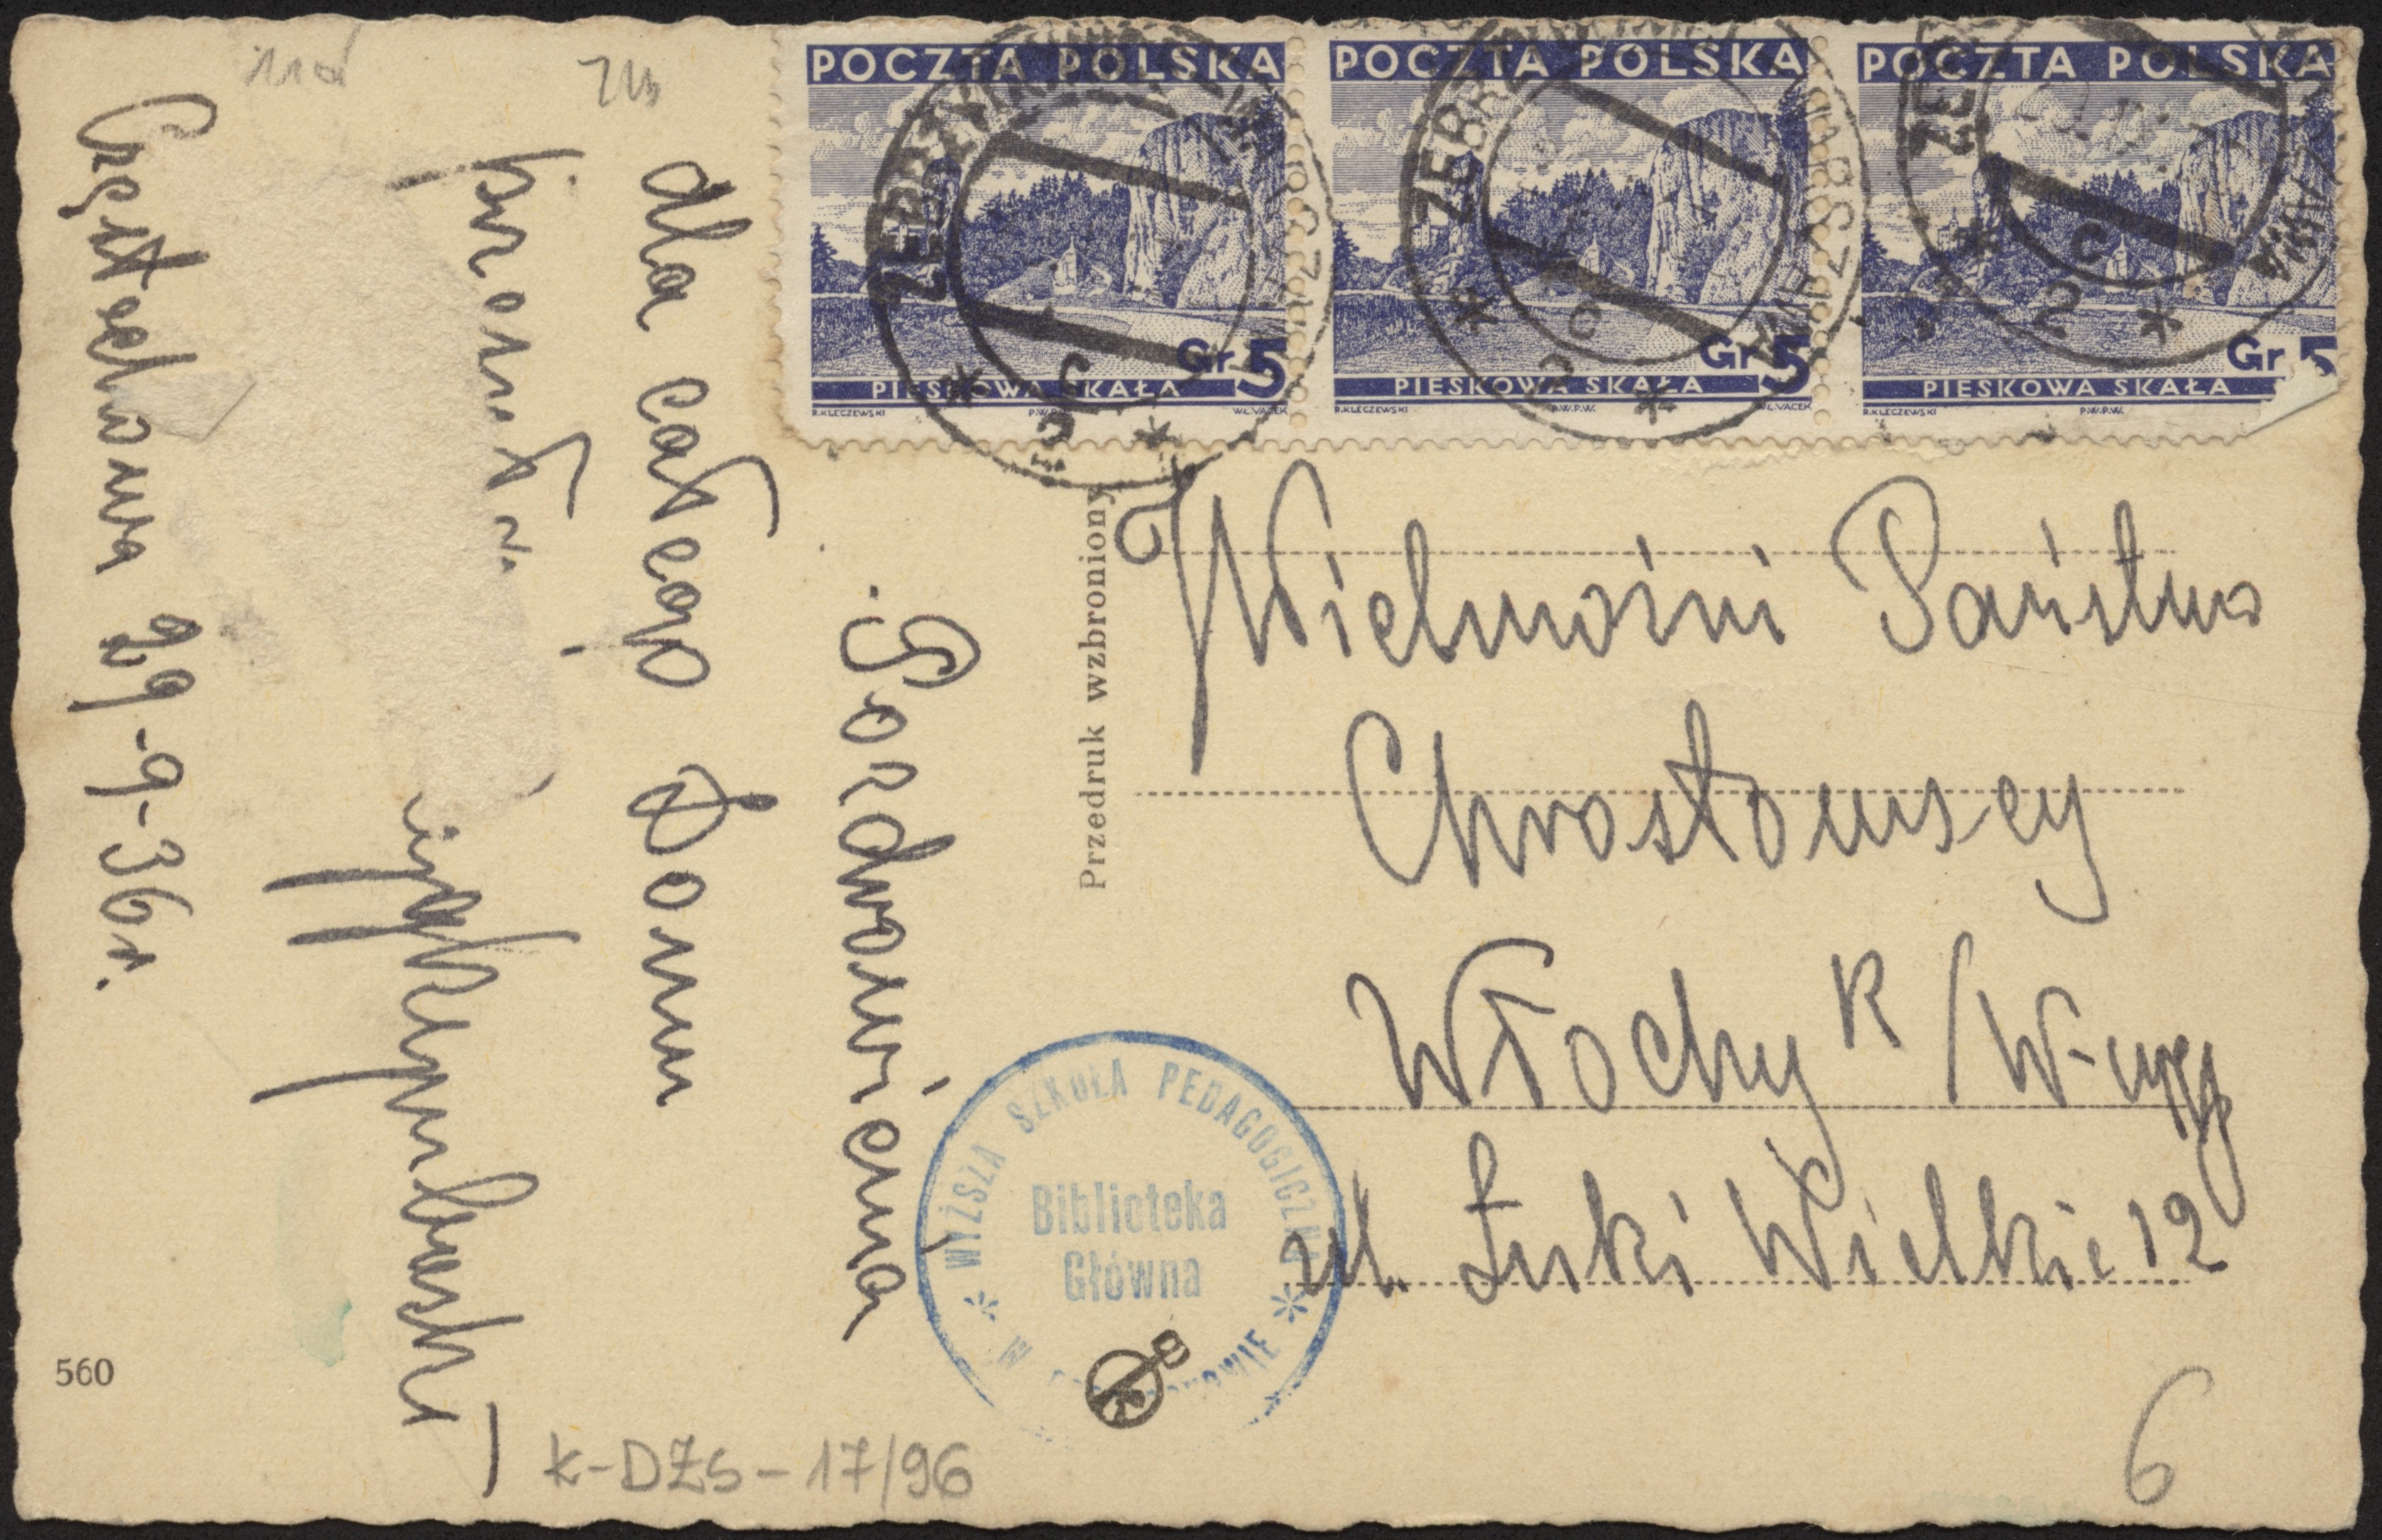 POCZTA POLSKA
Gr 5
PIESKOWA SKAŁA
R.KLECZEWSKI P.W.P.W. WŁ.VACEK
POCZTA POLSKA
Gr 5
PIESKOWA SKAŁA
R.KLECZEWSKI P.W.P.W. WŁ.VACEK
POCZTA POLSKA
Gr 5
PIESKOWA SKAŁA
R.KLECZEWSKI P.W.P.W.
Pozdrowienia
dla całego Domu
przesyła
Częstochowa 29-9-36r.
Przedruk wzbroniony
Wielmożni Państwo
Chrostowscy
Włochy k/W-wy
ul. Łuki Wielkie 12
WYŻSZA SZKOŁA PEDAGOGICZNA
Biblioteka
Główna
560
k-DŻS-17/96
6